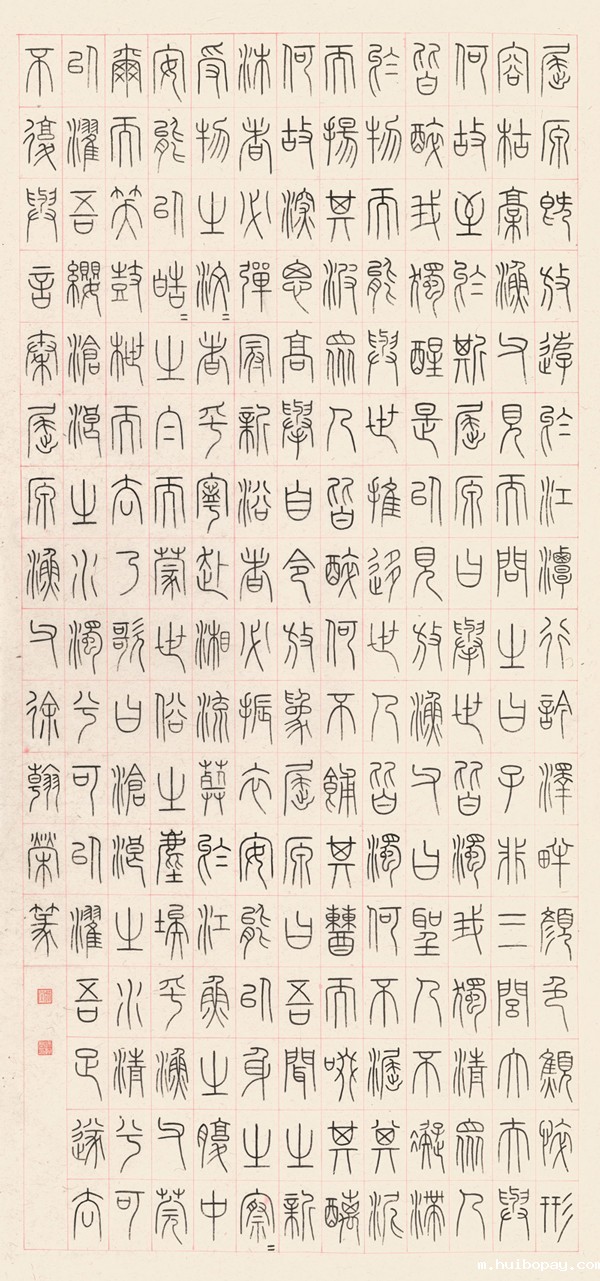 屈原既放遊於江潭行吟澤畔顏色顦悴形
容枯槁漁父見而問之曰子非三閭大夫與
何故至於斯屈原曰舉世皆濁我獨清眾人
皆醉我獨醒是以見放漁父曰聖人不凝滯
於物而能與世推移世人皆濁何不淈其泥
而揚其波眾人皆醉何不餔其糟而啜其醨
何故深思高舉自令放為屈原曰吾聞之新
沐者必彈冠新浴者必振衣安能以身之察〻
受物之汶〻者乎寧赴湘流葬於江魚之腹中
安能以皓〻之白而蒙世俗之塵埃乎漁父莞
爾而笑鼓枻而去乃歌曰滄浪之水清兮可
以濯吾纓滄浪之水濁兮可以濯吾足遂去
不復與言秦屈原漁父徐翰榮篆
m.huibopay.com